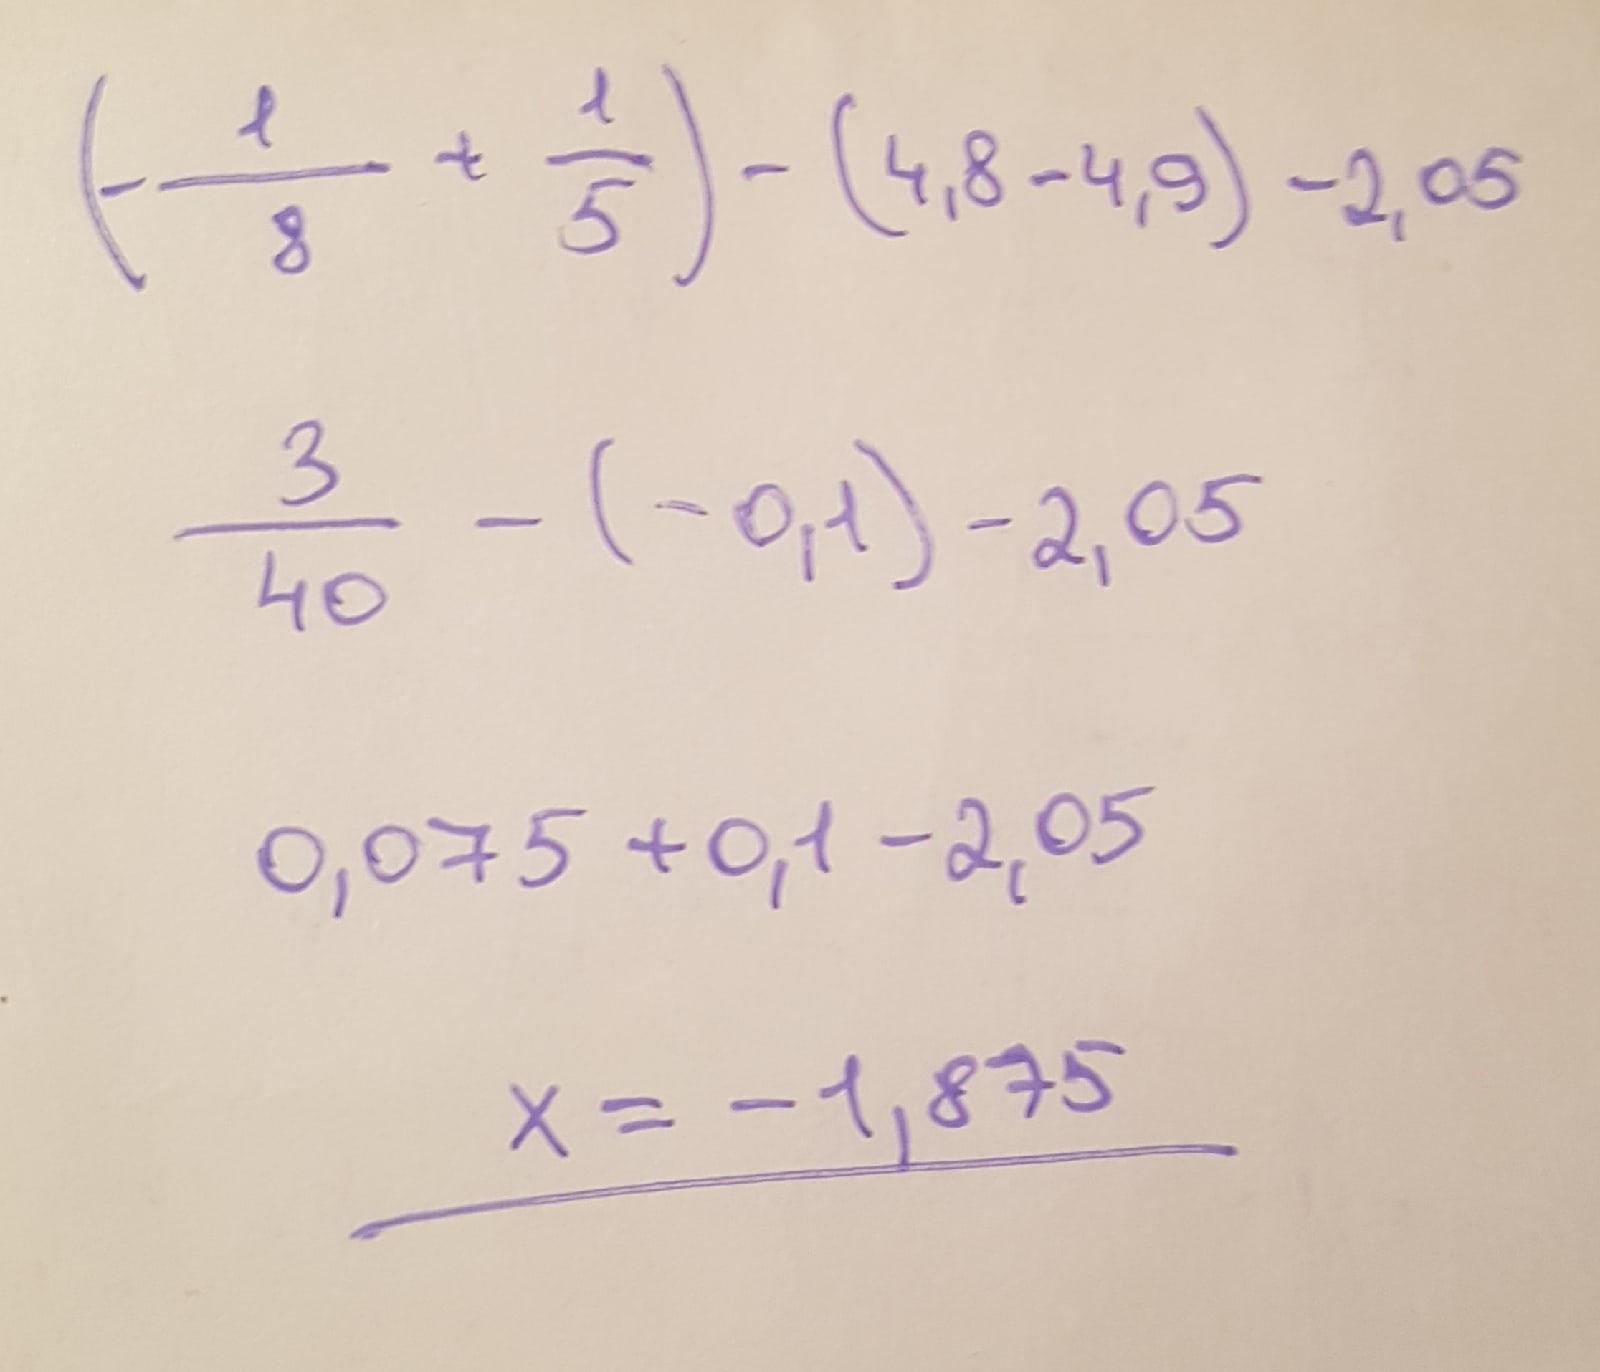 (- 1/8 + 1/5) - (4,8 - 4,9) - 2,05
3/40 - (-0,1) - 2,05
0,075 + 0,1 - 2,05
x = -1,875